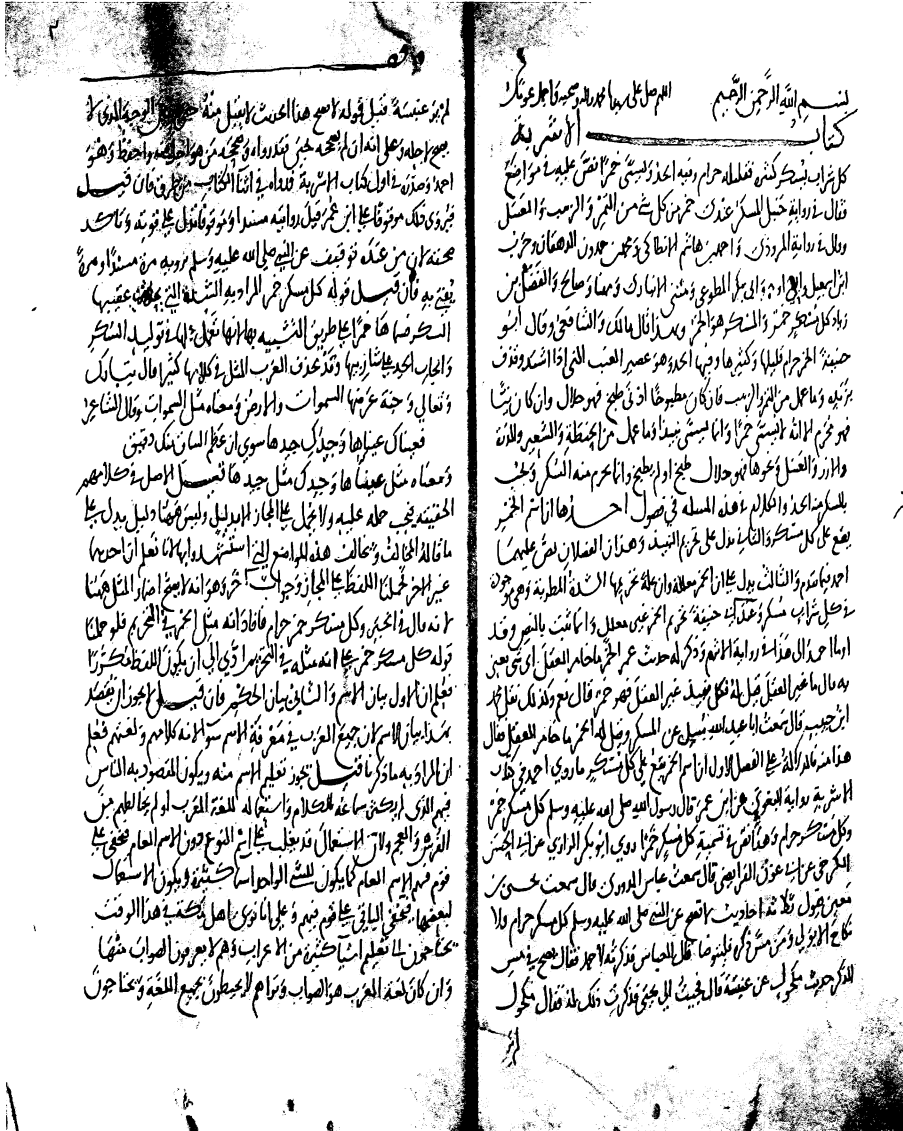 بسم الله الرحمن الرحيم اللهم صل على سيدنا محمد واله وصحبه واجعل عونك
كتاب الاشربة
كل شراب يسكر كثيره فقليله حرام وفيه الحد ويسمى خمرا نص عليه في مواضع
فقال في رواية حنبل المسكر عندي خمر من كل شي من التمر والزبيب والعسل
وقال في رواية المروذي واحمد بن هاشم الانطاكي ومحمد بن حمدون الدهقان وحرب
ابن اسمعيل وابي بكر المطوعي ومثنى الانباري ومهنا وصالح والفضل بن
زياد كل مسكر خمر والمسكر هو الخمر وبهذا قال مالك والشافعي وقال ابو
حنيفة الخمر حرام قليلها وكثيرها وفيها الحد وهو عصير العنب الني اذا اشتد وقذف
بزبده وما عمل من التمر والزبيب فان كان مطبوخا ادنى طبخ فهو حلال وان كان نيئا
فهو محرم الا انه لا يسمى خمرا وانما يسمى نبيذا وما عمل من الحنطة والشعير والذرة
والارز والعسل ونحوها فهو حلال طبخ او لم يطبخ وانما يحرم منه السكر ويجب
بالسكر منه الحد والكلام في هذه المسله في فصول احدها ان اسم الخمر
يقع على كل مسكر والثاني يدل على تحريم النبيذ وهذان الفصلان نص عليهما
احمد فيما تقدم والثالث يدل على ان الخمر معللة وان علة تحريمها الشدة المطربة وهي موجودة
في كل شراب مسكر وعند ابي حنيفة تحريم الخمر غير معلل وانما ثبت بالنص وقد
اوما احمد الى هذا في رواية الاثرم وذكر له حديث عمر الخمر ما خامر العقل اي شي يعني
به قال ما غير العقل قيل له فكل نبيذ غير العقل فهو خمر قال نعم وكذلك نقل محمد
ابن حبيب قال سمعت ابا عبد الله يسئل عن المسكر وقيل له الخمر ما خامر العقل فقال
هذا منه فالدلالة على الفصل الاول ان اسم الخمر يقع على كل مسكر ما روى احمد في كتاب
الاشربة رواية البغوي عن ابن عمر قال رسول الله صلى الله عليه وسلم كل مسكر خمر
وكل مسكر حرام وهذا نص في تسمية كل مسكر خمرا روى ابو بكر الرازي عن ابي الحسن
الكرخي عن ابي عون الفرائضي قال سمعت عباس الدوري قال سمعت يحيى بن
معين يقول ثلاثة احاديث لا تصح عن النبي صلى الله عليه وسلم كل مسكر حرام ولا
نكاح الا بولي ومن مس ذكره فليتوضا قال العباس فذكرته لاحمد فقال يصح في مس
الذكر حديث مكحول عن عنبسة قال فجيت الى يحيى فذكرت ذلك له فقال مكحول
لم ير عنبسة قيل قوله لا يصح هذا الحديث لا يقبل منه الوجه الذي لا
يصح لاجله وعلى انه ان لم يصححه يحيى فقد رواه وصححه من هو واحفظ وهو
احمد وصدره في اول كتاب الاشربة ورواه في اثنا الكتاب من طرق فان قيل
فقد روي ذلك موقوفا على ابن عمر قيل روايته مسندا وموقوفا تدل على قوته وتاكد
صحته لان من عنده توقيف عن النبي صلى الله عليه وسلم يرويه مرة مسندا ومرة
يفتي به فان قيل قوله كل مسكر خمر المراد به الشدة التي عقيبها
السكر سماها خمرا على طريق التشبيه بها لانها تعمل عملها في توليد السكر
وايجاب الحد على شاربها وقد تحذف العرب المثل في كلامها كثيرا قال تبارك
وتعالى وجنة عرضها السموات والارض ومعناه مثل السموات وقال الشاعر
فعيناك عيناها وجيدك جيدها سوى ان عظم الساق منك دقيق
ومعناه مثل عيناها وجيدك مثل جيدها قيل الاصل في كلامهم
الحقيقة فيجب حمله عليه ولا يحمل على المجاز الا بدليل وليس ههنا دليل يدل على
ما قاله المخالف وتخالف هذه المواضع التي استشهدوا بها لانا نعلم ان احدهما
غير الاخر فحملنا اللفظ على المجاز وجواب اخر وهو انه لا يصح اضمار المثل ههنا
لانه قال في الخبر وكل مسكر حرام فافاد انه مثل الخمر في التحريم فلو حملنا
قوله كل مسكر خمر على انه مثله في التحريم ادى الى ان يكون اللفظ مكررا
فعلم ان الاول بيان الاسم والثاني بيان الحكم فان قيل لا يجوز ان يقصد
بهذا بيان الاسم لان جميع العرب في معرفة الاسم سوا لانه كلامهم ولغتهم فعلم
ان المراد به ما ذكرنا قيل يجوز تعليم الاسم منه ويكون المقصود به الناس
فيهم الذي لم يكثر سماعه للكلام واستعماله للغة العرب او لم يخالطهم من
الفرس والعجم ولان الاستعمال قد يغلب على اسم النوع دون الاسم العام فيخفى على
قوم منهم الاسم العام كما يكون للشي الواحد اسما كثيرة ويكون الاستعمال
لبعضها فيخفى الباقي على قوم منهم وعلى انا نرى اهل مكة في هذا الوقت
يحتاجون الى تعليم اشيا كثيرة من الاعراب وهم لا يعرفون الصواب منها
وان كان لغة العرب هو الصواب ونراهم لا يحيطون بجميع اللغة ويحتاجون